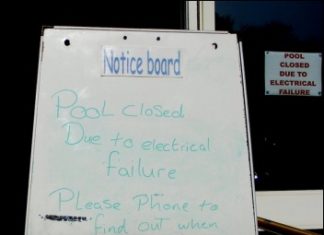 Notice board
POOL CLOSED
DUE TO
ELECTRICAL
FAILURE
POOL CLOSED
Due to electrical
failure
Please Phone to
find out when